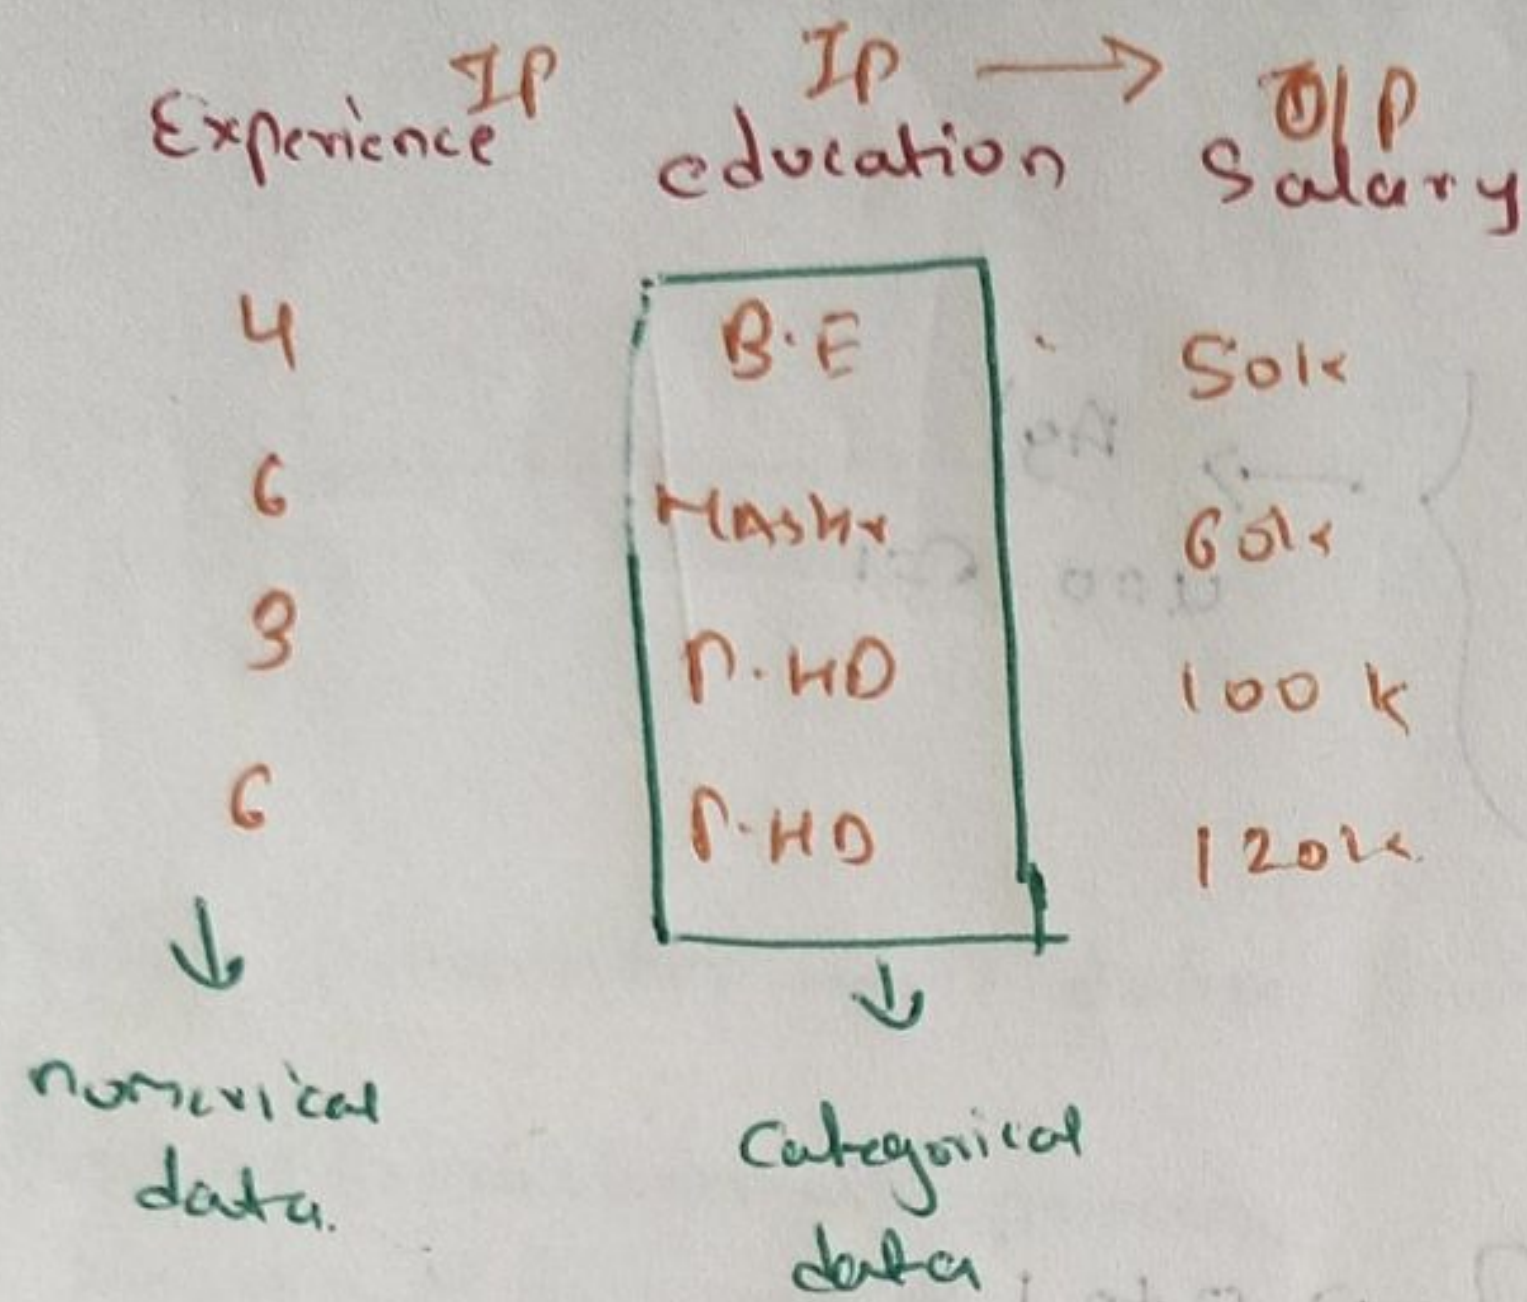 IP IP → O/P
Experience education Salary
4 B.E 50k
6 MASter 60k
3 P.HD 100k
6 P.HD 120k
↓ ↓
numerical categorical
data. data